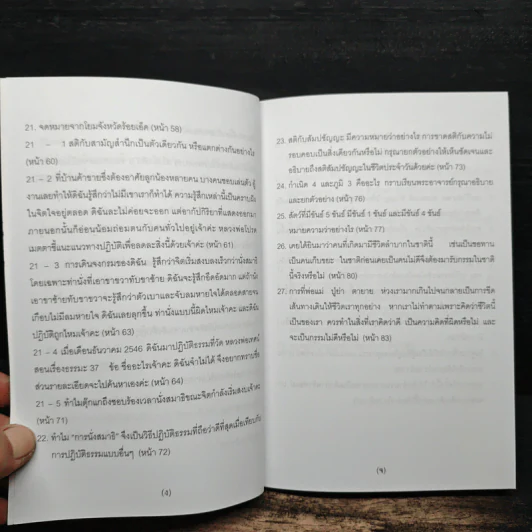 21. จดหมายจากโยมจังหวัดร้อยเอ็ด (หน้า 58)
21 – 1 สติกับสามัญสำนึกเป็นตัวเดียวกัน หรือแตกต่างกันอย่างไร
(หน้า 60)
21 – 2 ที่บ้านค้าขายซึ่งต้องอาศัยลูกน้องหลายคน บางคนชอบเล่นตัว ผู้
งานเลยทำให้ดิฉันรู้สึกว่าไม่มีเขาเราก็ทำได้ ความรู้สึกเหล่านี้เป็นคราบฝัง
ในจิตใจอยู่ตลอด ดิฉันละไม่ค่อยจะออก แต่อากัปกิริยาที่แสดงออกมา
ภายนอกนั้นก็อ่อนน้อมถ่อมตนกับคนทั่วไปอยู่เจ้าค่ะ หลวงพ่อโปรด
เมตตาชี้แนะแนวทางปฏิบัติเพื่อลดละสิ่งนี้ด้วยเจ้าค่ะ (หน้า 61)
21 – 3 การเดินจงกรมของดิฉัน รู้สึกว่าจิตเริ่มสงบเร็วกว่านั่งสมาธิ
โดยเฉพาะท่านั่งที่เอาขาขวาทับขาซ้าย ดิฉันจะรู้สึกอึดอัดมาก แต่ถ้านั่ง
เอาขาซ้ายทับขาขวาจะรู้สึกว่าตัวเบาและจับลมหายใจได้ตลอดสายจน
เกือบไม่มีลมหายใจ ดิฉันเลยลุกขึ้น ท่านั่งแบบนี้ผิดไหมเจ้าคะ และดิฉัน
ปฏิบัติถูกไหมเจ้าคะ (หน้า 63)
21 – 4 เมื่อเดือนธันวาคม 2546 ดิฉันมาปฏิบัติธรรมที่วัด หลวงพ่อเทศน์
สอนเรื่องธรรมะ 37 ข้อ ชื่ออะไรเจ้าคะ ดิฉันจำไม่ได้ จึงอยากทราบชื่อ
ส่วนรายละเอียดจะไปค้นหาเองค่ะ (หน้า 64)
21 – 5 ทำไมตุ๊กแกถึงชอบร้องเวลานั่งสมาธิขณะจิตกำลังเริ่มสงบเจ้าคะ
(หน้า 71)
22. ทำไม "การนั่งสมาธิ" จึงเป็นวิธีปฏิบัติธรรมที่ถือว่าดีที่สุดเมื่อเทียบกับ
การปฏิบัติธรรมแบบอื่นๆ (หน้า 72)
(4)
23. สติกับสัมปชัญญะ มีความหมายว่าอย่างไร การขาดสติกับความไม่
รอบคอบเป็นสิ่งเดียวกันหรือไม่ กรุณายกตัวอย่างให้เห็นชัดเจนและ
อธิบายถึงสติสัมปชัญญะในชีวิตประจำวันด้วยค่ะ (หน้า 73)
24. กำเนิด 4 และภูมิ 3 คืออะไร กราบเรียนพระอาจารย์กรุณาอธิบาย
และยกตัวอย่าง (หน้า 76)
25. สัตว์ที่มีขันธ์ 5 ขันธ์ มีขันธ์ 1 ขันธ์ และมีขันธ์ 4 ขันธ์
หมายความว่าอย่างไร (หน้า 77)
26. เคยได้ยินมาว่าคนที่เกิดมามีชีวิตลำบากในชาตินี้ เช่นเป็นขอทาน
เป็นคนเก็บขยะ ในชาติก่อนเคยเป็นคนไม่ดีจึงต้องมารับกรรมในชาติ
นี้จริงหรือไม่ (หน้า 80)
27. การที่พ่อแม่ ปู่ย่า ตายาย ห่วงเรามากเกินไปจนกลายเป็นการขีด
เส้นทางเดินให้ชีวิตเราทุกอย่าง หากเราไม่ทำตามเพราะคิดว่าชีวิตนี้
เป็นของเรา ควรทำในสิ่งที่เราคิดว่าดี เป็นความคิดที่ผิดหรือไม่ และ
จะเป็นกรรมไม่ดีหรือไม่ (หน้า 83)